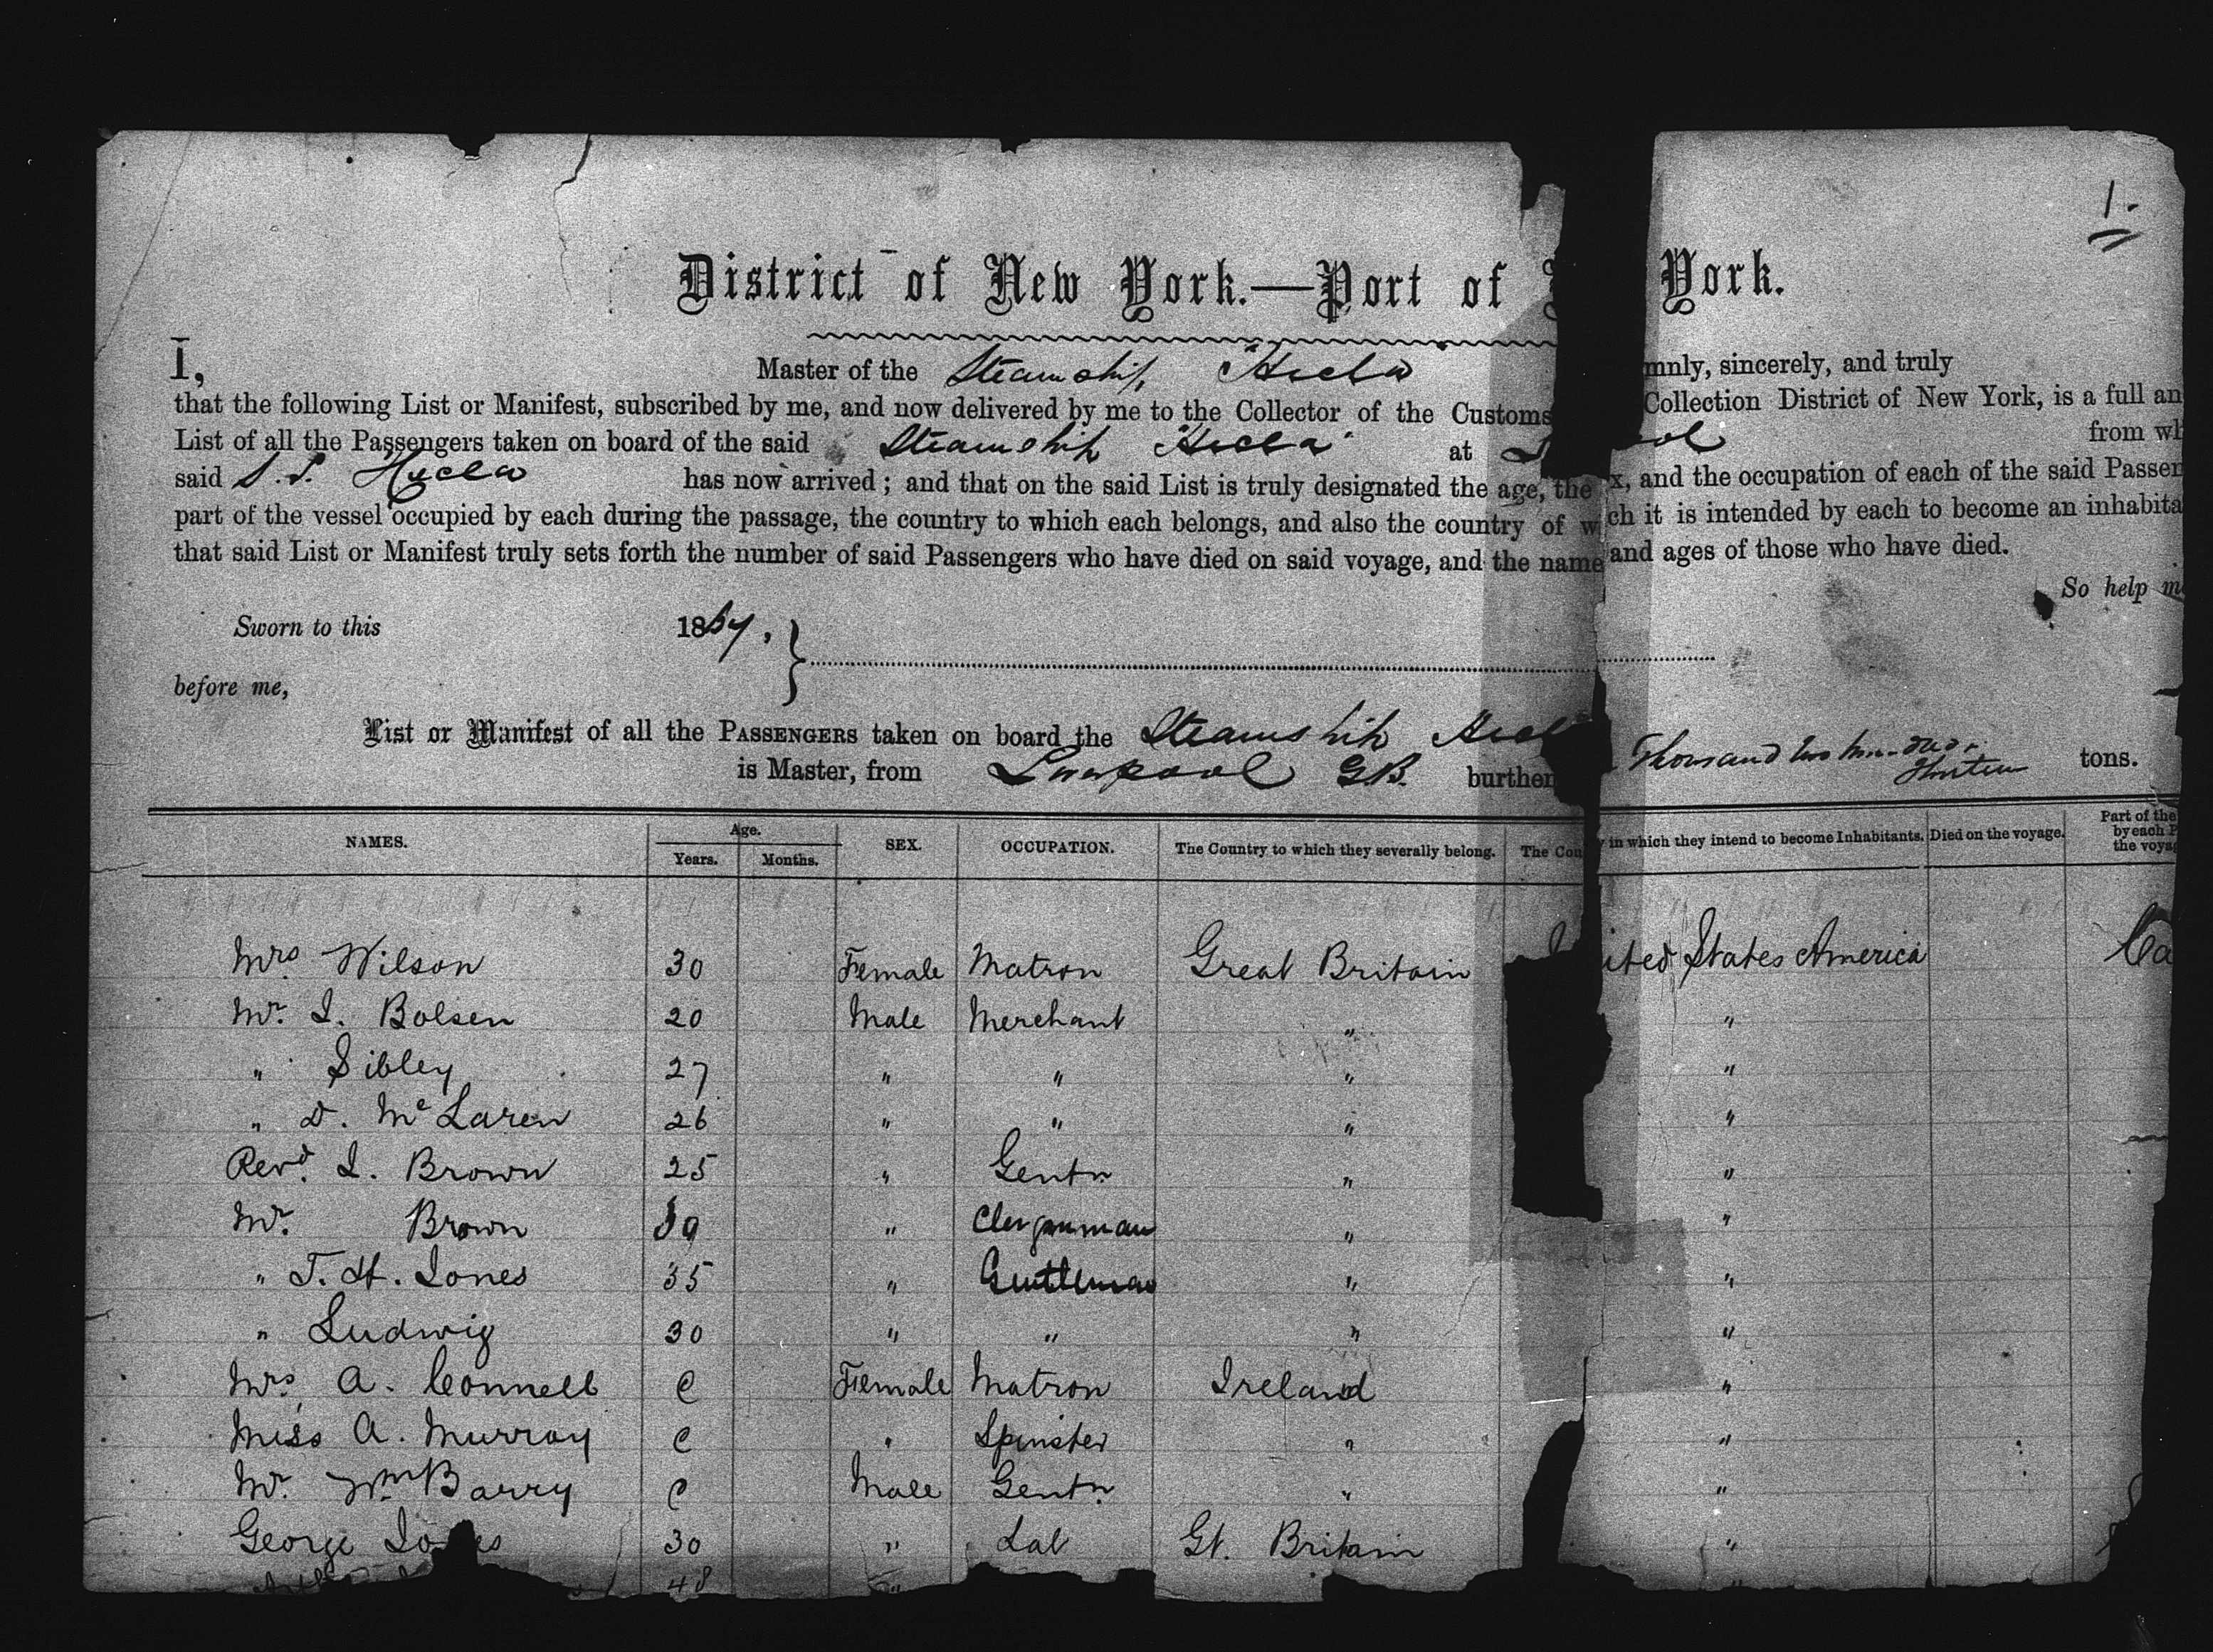 1.
District of New York.—Port of York.
I, Master of the Steamship "Hecla" mnly, sincerely, and truly
that the following List or Manifest, subscribed by me, and now delivered by me to the Collector of the Customs Collection District of New York, is a full an
List of all the Passengers taken on board of the said Steamship "Hecla" at L ool from wh
said S.S. Hecla has now arrived; and that on the said List is truly designated the age, the x, and the occupation of each of the said Passen
part of the vessel occupied by each during the passage, the country to which each belongs, and also the country of w ch it is intended by each to become an inhabita
that said List or Manifest truly sets forth the number of said Passengers who have died on said voyage, and the name and ages of those who have died.
So help m
Sworn to this 1864.
before me,
List or Manifest of all the PASSENGERS taken on board the Steamship Hecl
is Master, from Liverpool G.B. burthen Thousand two hundred tons.
NAMES. Age. Years. Months. SEX. OCCUPATION. The Country to which they severally belong. The Coun y in which they intend to become Inhabitants. Died on the voyage. Part of the by each P the voyag
Mrs Wilson 30 Female Matron Great Britain United States America Ca
Mr. I. Bolsen 20 Male Merchant " "
" Sibley 27 " " " "
" D. McLaren 26 " " " "
Revd. I. Brown 25 " Gentn " "
Mr. Brown 39 " Clergyman " "
" T. H. Jones 35 " Gentleman " "
" Ludwig 30 " " " "
Mrs A. Connell C Female Matron Ireland "
Miss A. Murray C " Spinster " "
Mr. Wm Barry C Male Gentn " "
George Jo es 30 " Lab Gt. Britain "
48 " "